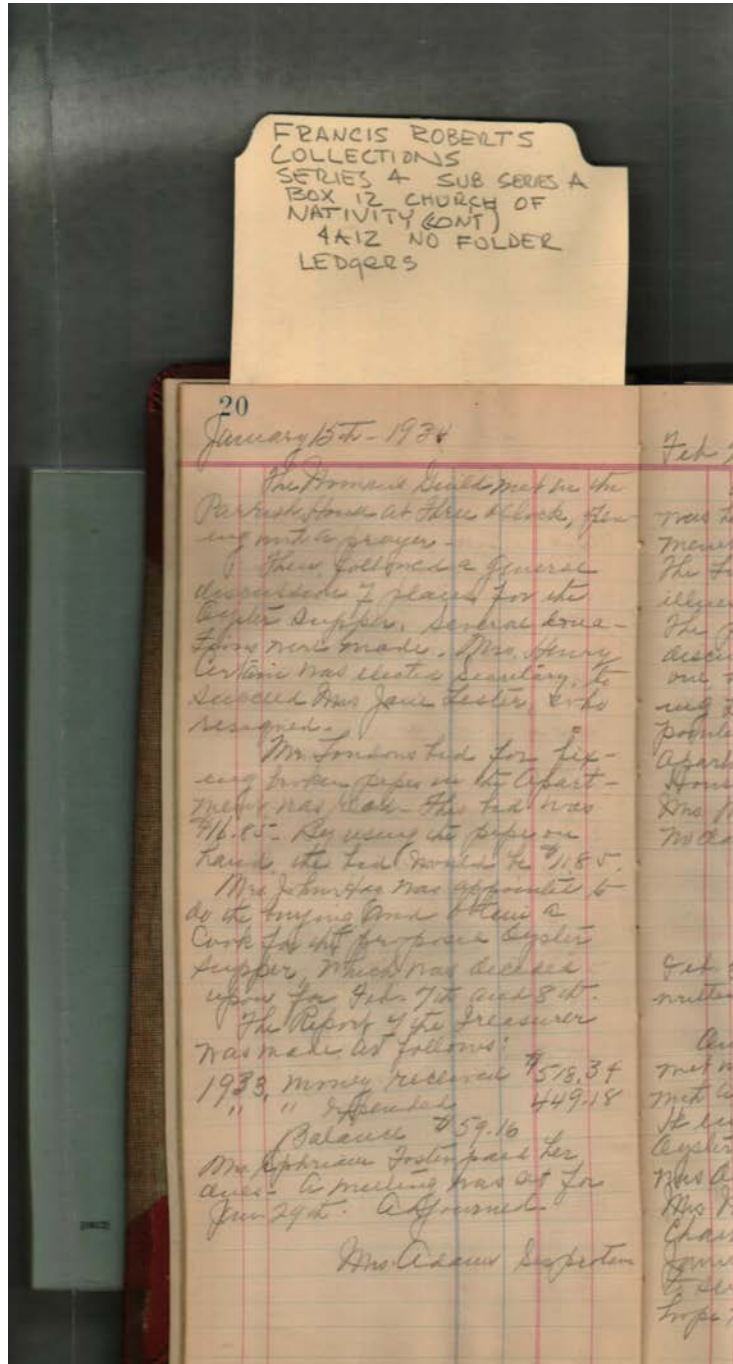 FRANCIS ROBERTS
COLLECTIONS
SERIES 4 SUB SERIES A
BOX 12 CHURCH OF
NATIVITY (CONT)
4A12 NO FOLDER
LEDGERS
20
January 15th - 1934
The Woman's Guild met in the
Parrish House at three o'clock, open-
ing with a prayer -
Then followed a general
discussion of plans for the
Oyster Supper. Several dona-
tions were made. Mrs. Henry
Certain was elected Secretary, to
succeed Mrs Jane Lester, who
resigned.
Mr. Londons bid for fix-
ing broken pipes in the Apart-
ment was read - His bid was
$16.85 - By using the pipe on
hand, the bid would be $11.85.
Mrs John Hay was appointed to
do the buying and obtain a
Cook for the proposed Oyster
Supper, which was decided
upon for Feb. 7th and 8th.
The Report of the Treasurer
was made as follows:
1933, money received $518.34
" " Expended 449.18
Balance $59.16
Mrs. Ephriam Foster paid her
dues - A meeting was set for
Jan. 29th. Adjourned
Mrs. Adams Sec protem
Feb
was
The
The
one
Apart
House
Mrs.
Feb.
written
met
met
It
Oyster
Mrs
Chair
hope